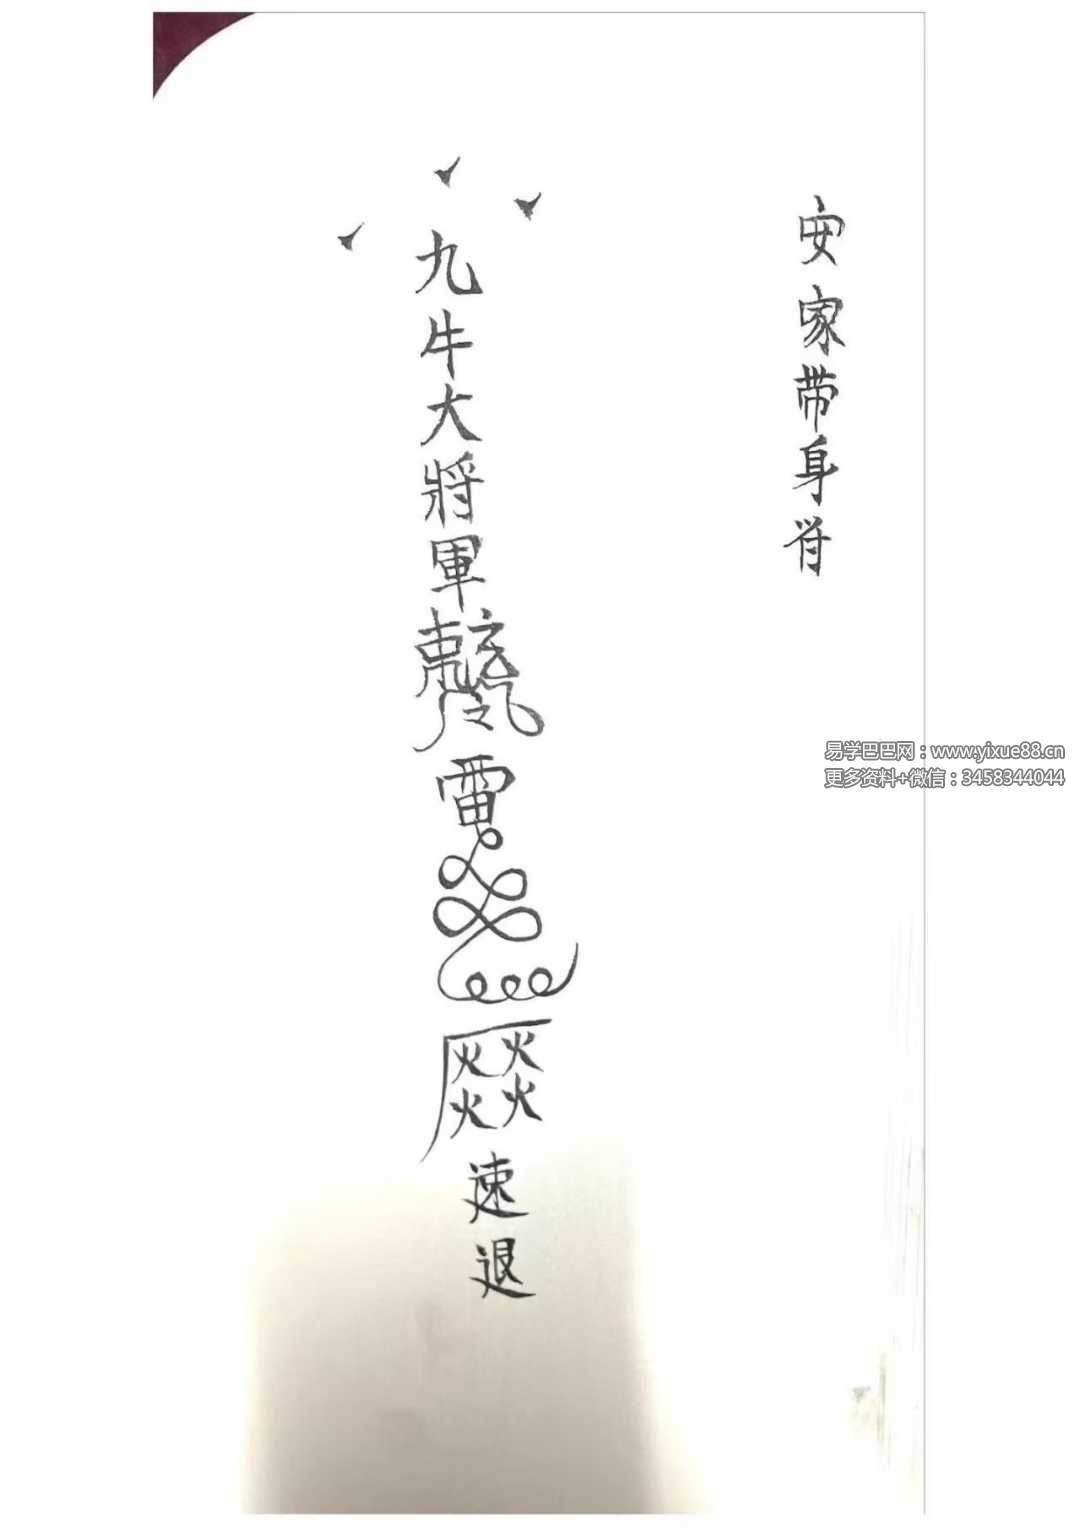 安家带身符
九牛大將軍
雷
火火
火火
速退
易学巴巴网：www.yixue88.cn
更多资料+微信：3458344044